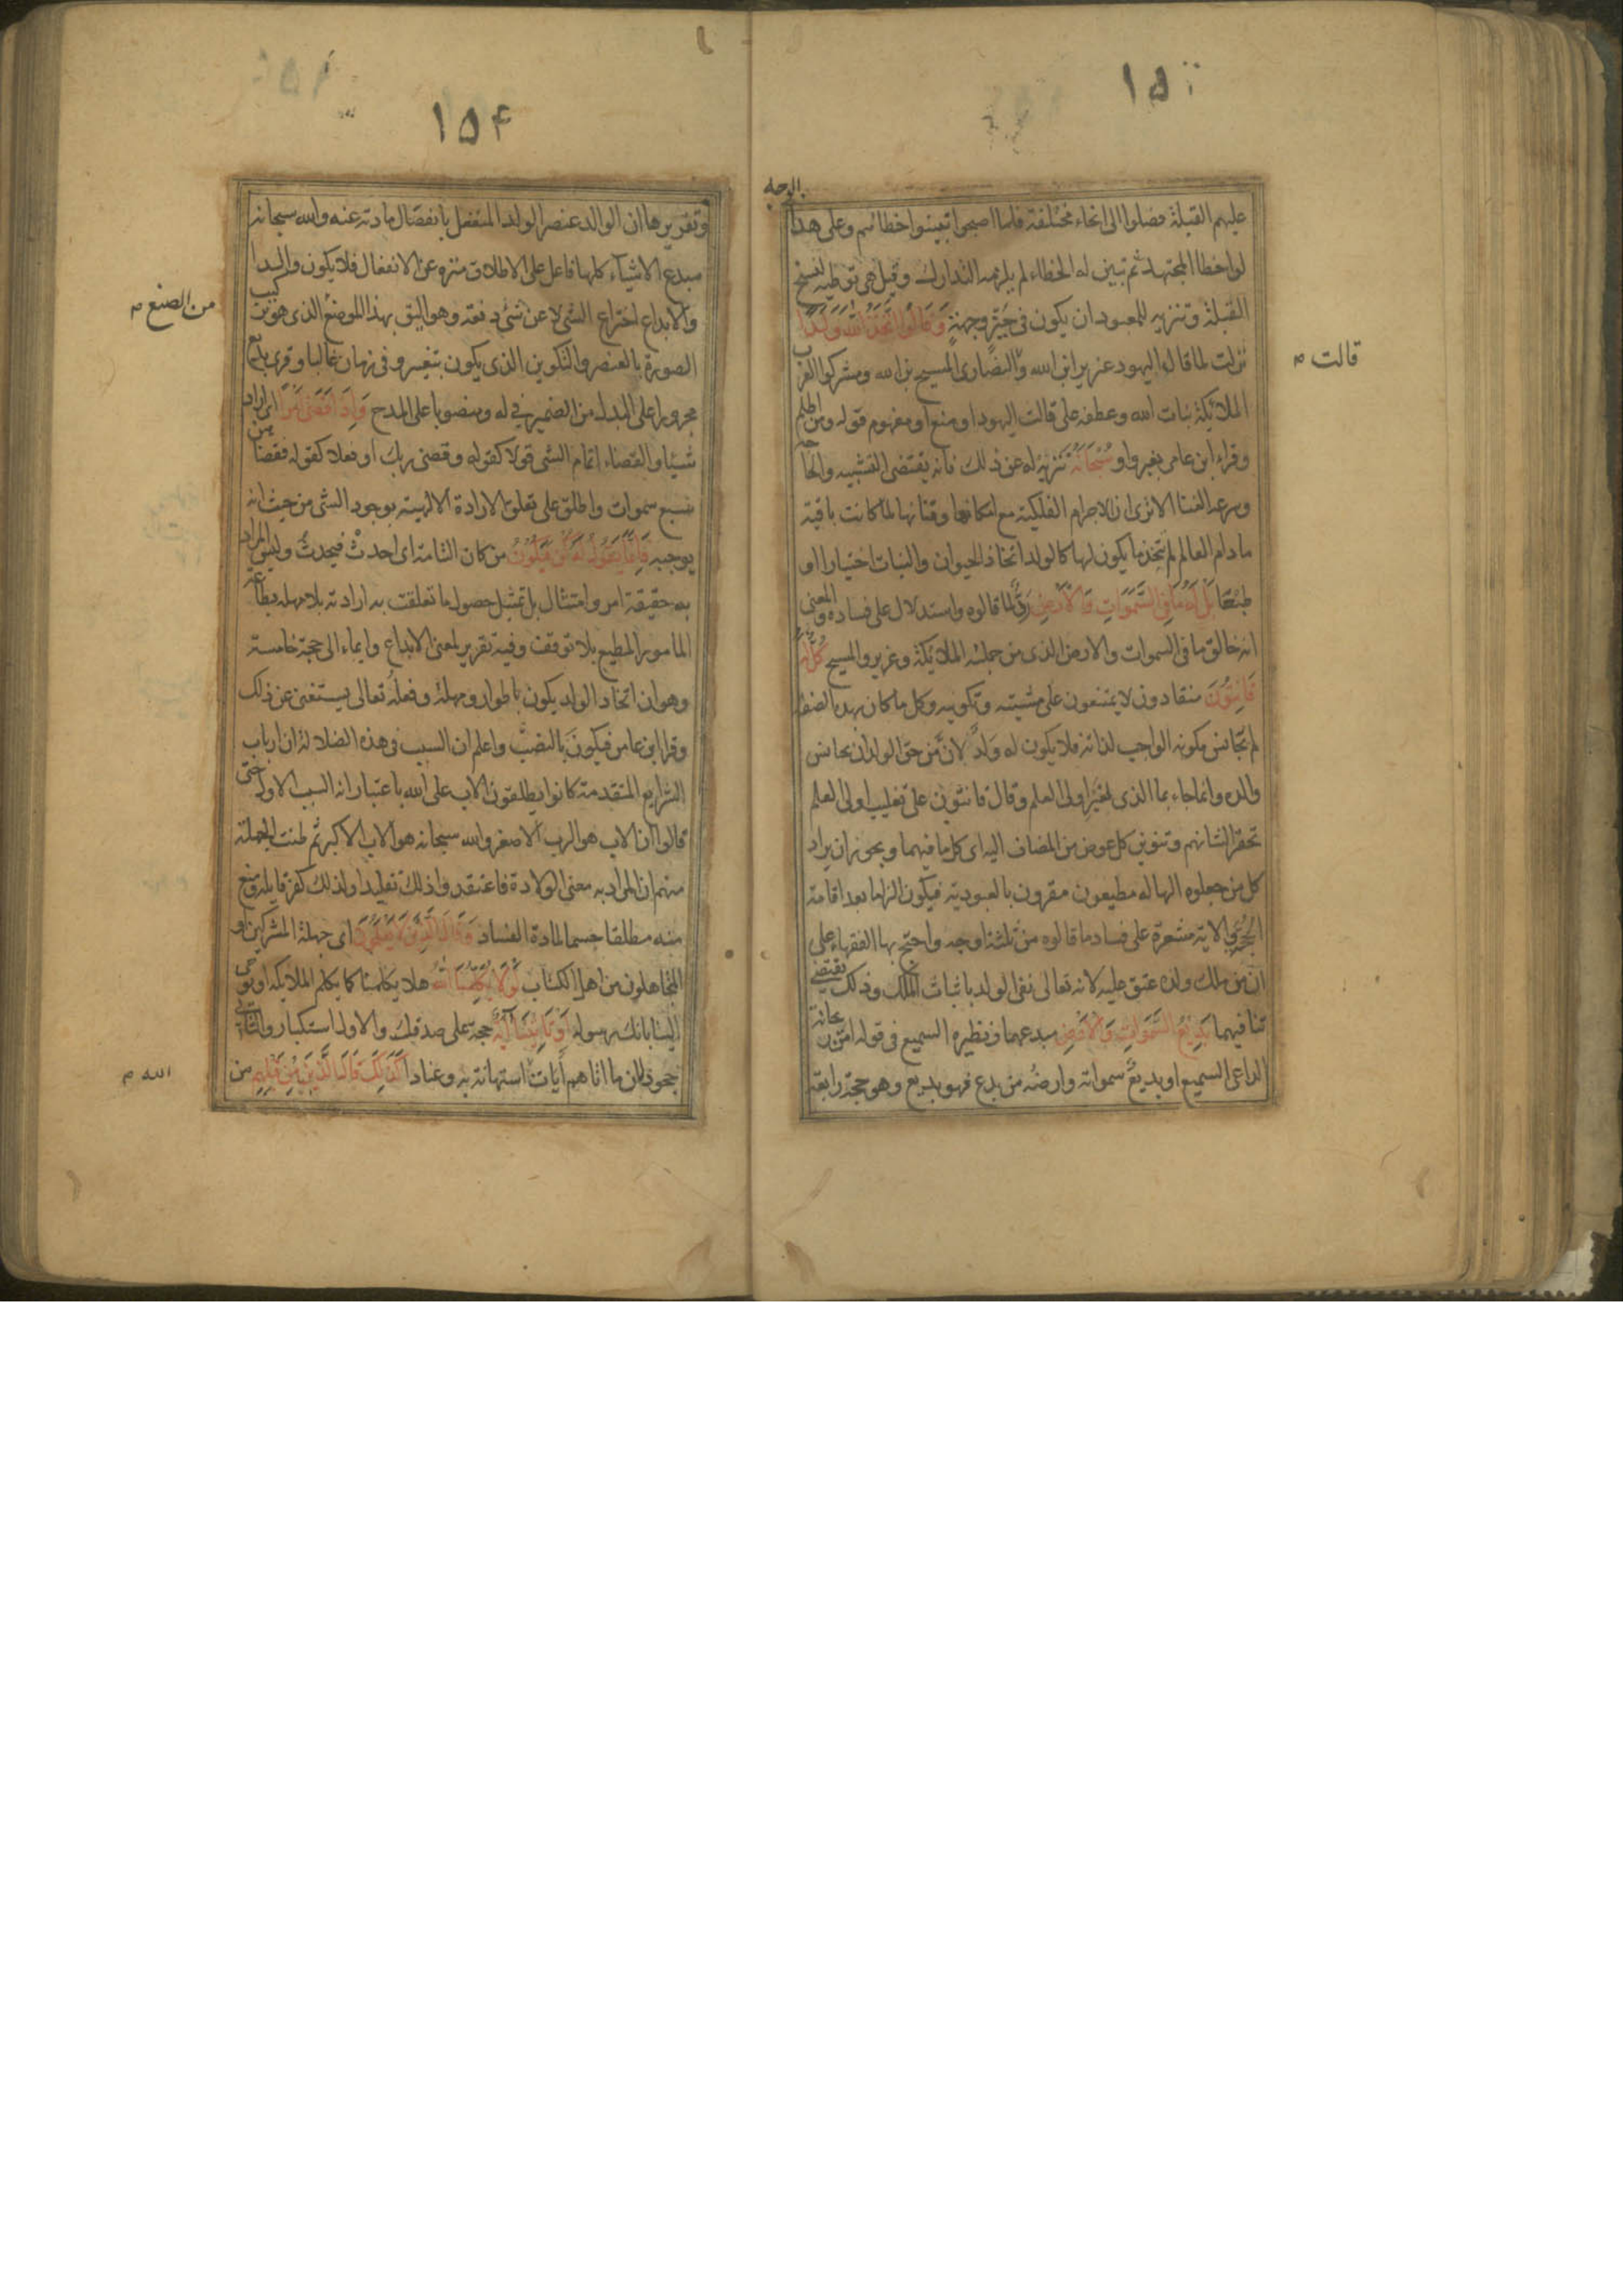 ١٥
عليهم القبلة فصلوا الى انحاء مختلفة فلما اصبحوا تبينوا خطائهم وعلى هذا
لو اخطا المجتهد ثم تبين له الخطاء لم يلزمه التدارك وقيل هى توطيه لنسخ
القبلة وتنزيه للمعبود ان يكون فى حيز وجهة وَقَالُوا اتَّخَذَ اللهُ وَلَدًا
نزلت لما قال اليهود عزير ابن الله والنصارى المسيح بن الله ومشركوا العرب
الملائكة بنات الله وعطفه على قالت اليهود او منع او مفهوم قوله ومن اظلم
وقراء ابن عامر بغير واو سُبْحَانَهُ تنزيه له عن ذلك فانه يقتضى التشبيه والحاجة
وسرعة الفنا الا ترى ان الاجرام الفلكية مع امكانها وفنائها لما كانت باقية
ما دام العالم لم تتخذ ما يكون لها كالولد اتخاذ الحيوان والنبات اختيارا او
طبعًا بَلْ لَهُ مَا فِى السَّمَوَاتِ وَالْاَرْضِ ردٌّ لما قالوه واستدلال على فساده والمعنى
انه خالق ما فى السموات والارض الذى من جملته الملائكة وعزير والمسيح كُلٌّ لَهُ
قَانِتُونَ منقادون لا يمتنعون على مشيته وتكوينه وكل ما كان بهذه الصفة
لم تجانس مكونه الواجب لذاته فلا يكون له ولدٌ لانّ من حق الولد ان يجانس
والده وانما جاء بما الذى لغير اولى العلم وقال قانتون على تغليب اولى العلم
تحقرا لشانهم وتنوين كل عوض من المضاف اليه اى كل ما فيهما ويجوز ان يراد
كل من جعلوه الها له مطيعون مقرون بالعبودية فيكون الزاما بعد اقامة
الحجة والاية مشعرة على فساد ما قالوه من ثلثة اوجه واحتج بها الفقهاء على
ان من ملك ولده عتق عليه لانه تعالى نفى الولد باثبات الملك وذلك يقتضى
تنافيهما بَدِيعُ السَّمَوَاتِ وَالْاَرْضِ مبدعهما ونظيره السميع فى قوله امن ريحانة
الداعى السميع او بديعٌ سمواته وارضه من بدع فهو بديع وهو حجة رابعة
قالت
١٥٤
وتقريرها ان الوالد عنصر الولد المنفصل بانفصال مادته عنه والله سبحانه
مبدع الاشياء كلها فاعل على الاطلاق منزه عن الانفعال فلا يكون والدا
والابداع اختراع الشى لا عن شئ دفعة وهو اليق بهذا الموضع الذى هو تركيب
الصورة بالعنصر والتكوين الذى يكون بتغيير وفى زمان غالبا وقرى بديع
مجرورا على البدل من الضمير فى له ومنصوبا على المدح وَاِذَا قَضَى اَمْرًا اى اراد
شيئا والقضاء اتمام الشى قولا كقوله وقضى ربك او فعلا كقوله فقضاهن
سبع سموات واطلق على تعلق الارادة الالهية بوجود الشى من حيث انه
يوجبه فَاِنَّمَا يَقُولُ لَهُ كُنْ فَيَكُونُ من كان التامة اى احدث فيحدث وليس المراد
به حقيقة امر وامتثال بل تمثيل حصول ما تعلقت به ارادته بلا مهلة بطاعة
المامور المطيع بلا توقف وفيه تقرير لمعنى الابداع وايماء الى حجة خامسة
وهو ان اتخاذ الولد يكون باطوار ومهلة وفعله تعالى يستغنى عن ذلك
وقرا ابن عامر فيكونَ بالنصب واعلم ان السبب فى هذه الضلالة ان ارباب
الشرايع المتقدمة كانوا يطلقون الاب على الله باعتبار انه السبب الاول حتى
قالوا ان الاب هو الرب الاصغر والله سبحانه هو الاب الاكبر ثم ظنت الجهلة
منهم ان المراد به معنى الولادة فاعتقدوا ذلك تقليدا ولذلك كفر قايله ومنع
منه مطلقا حسما لمادة الفساد وَقَالَ الَّذِينَ لَا يَعْلَمُونَ اى جهلة المشركين او
المتجاهلون من اهل الكتاب لَوْلَا يُكَلِّمُنَا اللهُ هلا يكلمنا كما يكلم الملائكه او يوحى
الينا بانك رسوله اَوْ تَاْتِينَا آيَةٌ حجة على صدقك والاول استكبار والثانى
جحود لان ما اتاهم آيات استهانة به وعنادا كَذَلِكَ قَالَ الَّذِينَ مِنْ قَبْلِهِم من
من الصنع
الله